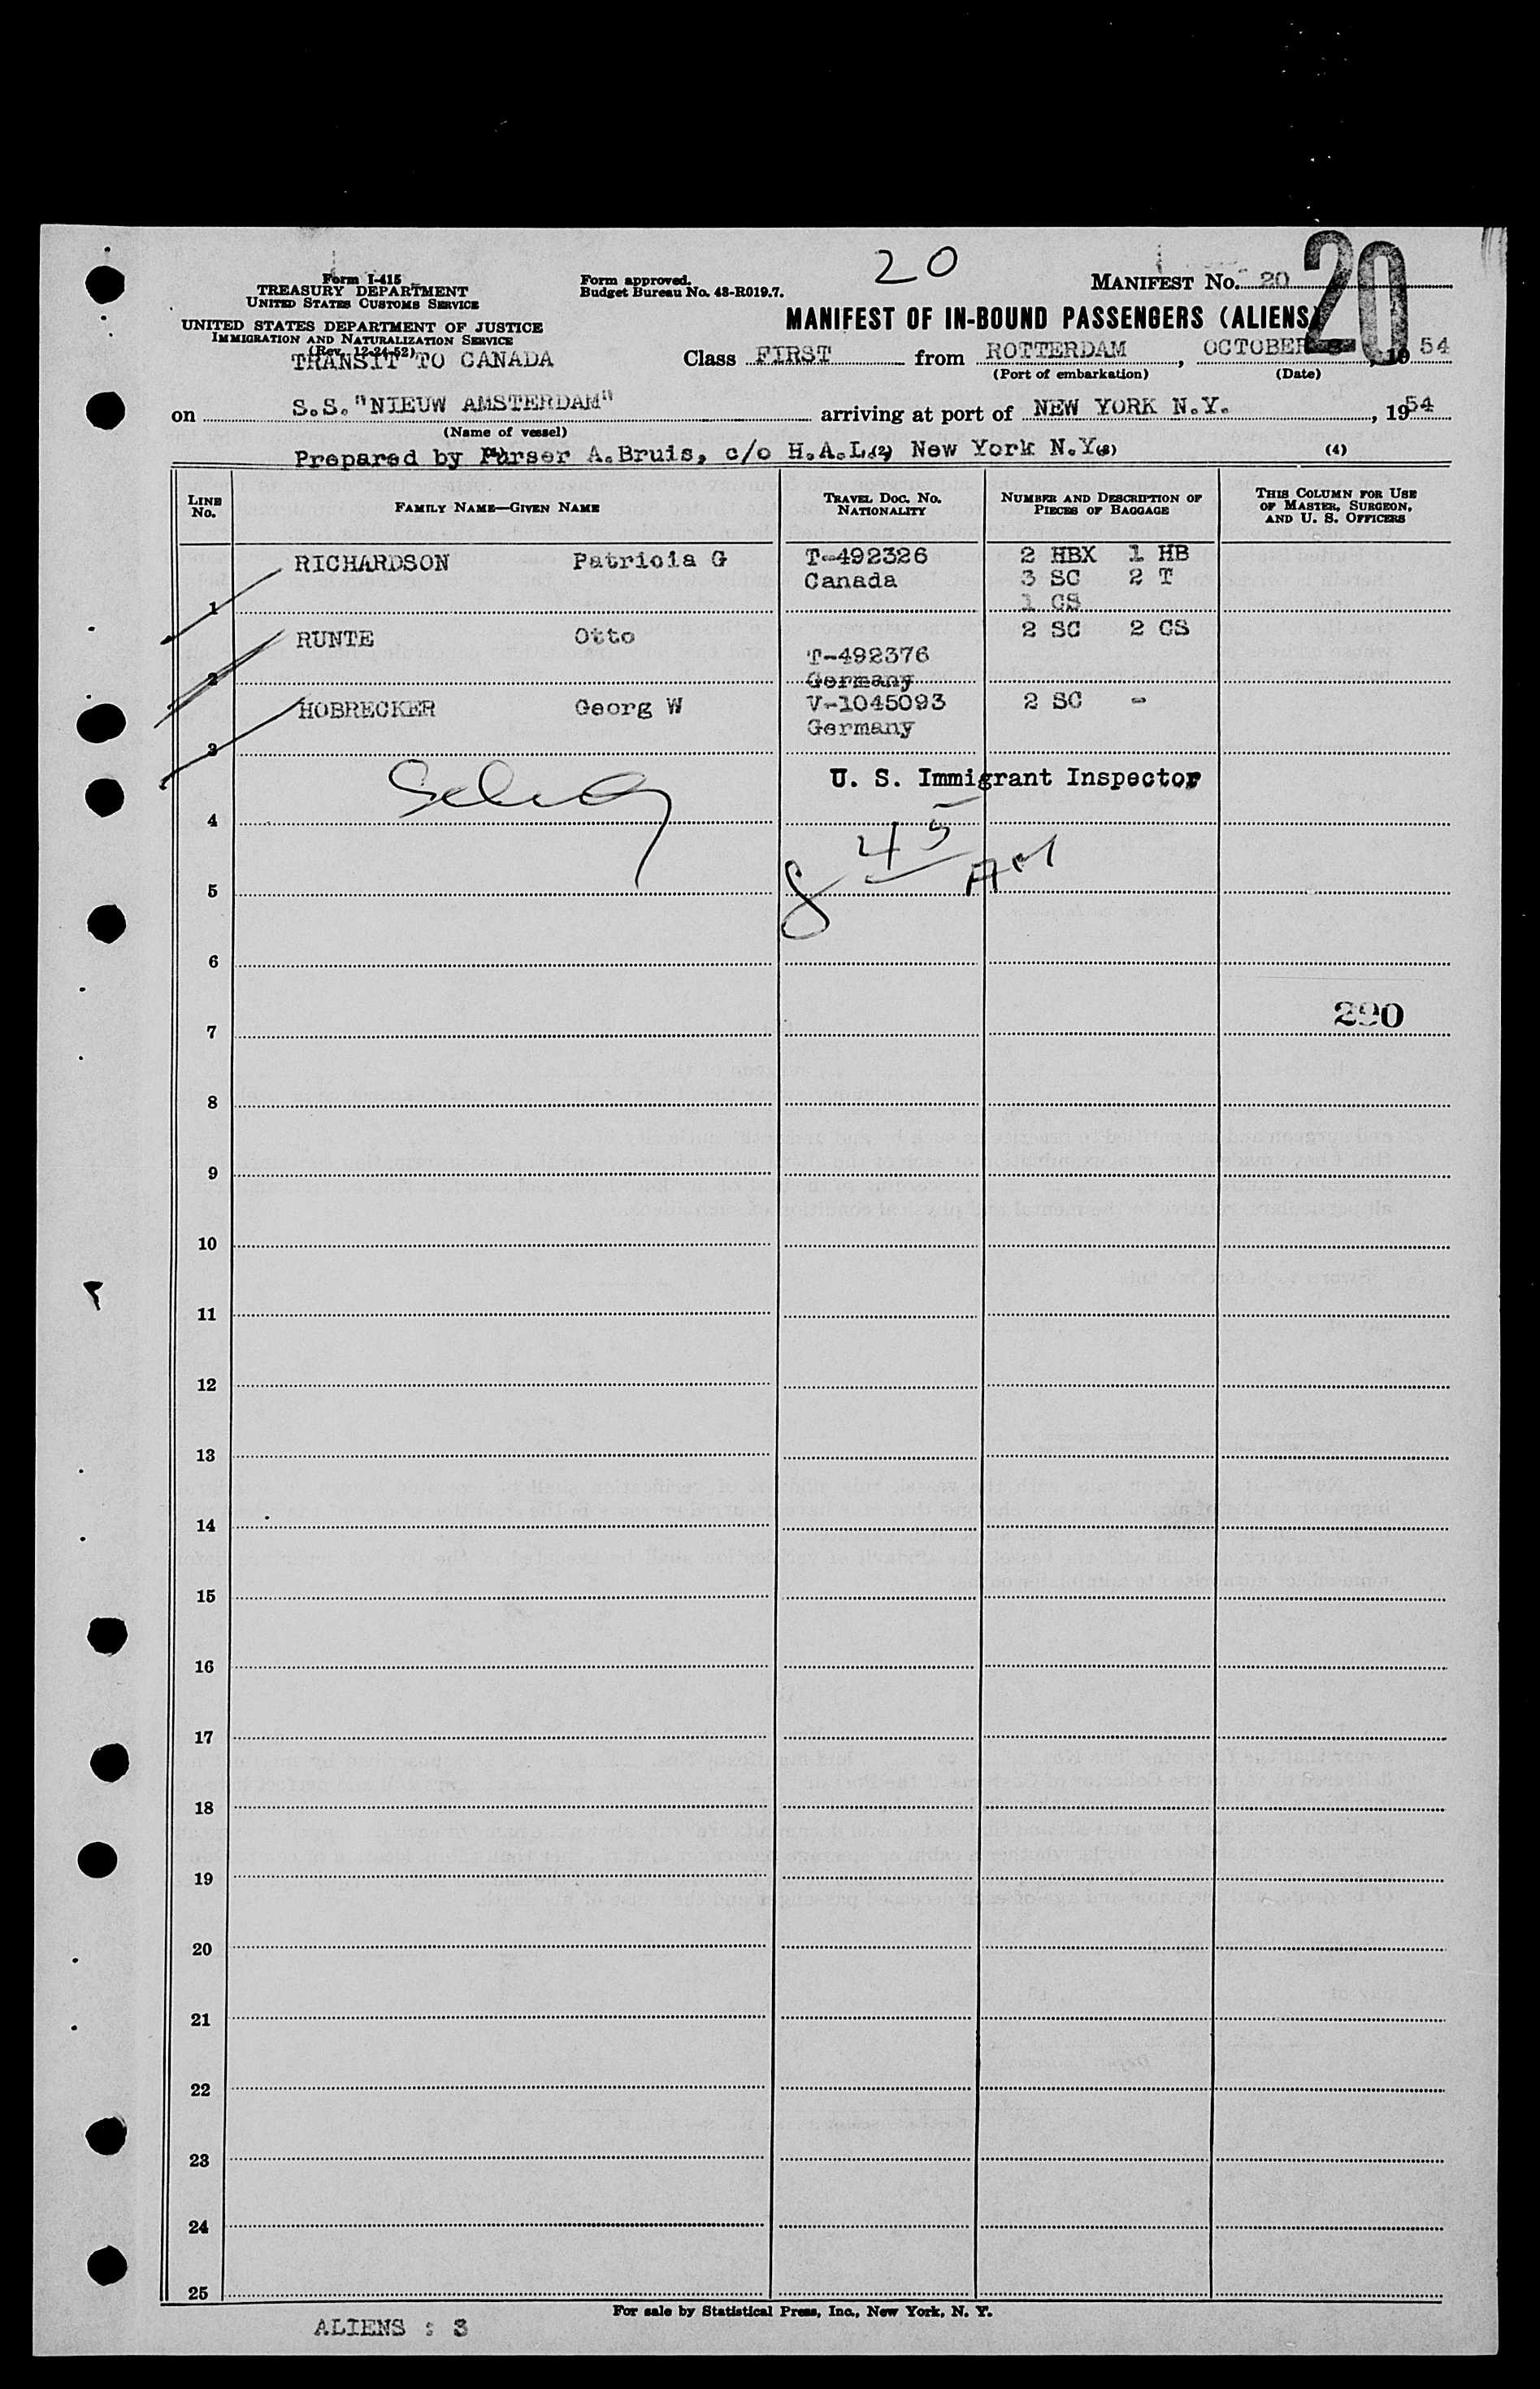 20
Form I-415
TREASURY DEPARTMENT
UNITED STATES CUSTOMS SERVICE
Form approved.
Budget Bureau No. 43-R019.7.
MANIFEST No. 20
20
UNITED STATES DEPARTMENT OF JUSTICE
IMMIGRATION AND NATURALIZATION SERVICE
(Rev. 12-24-52)
MANIFEST OF IN-BOUND PASSENGERS (ALIENS)
TRANSIT TO CANADA
Class FIRST from ROTTERDAM, OCTOBER, 1954
(Port of embarkation) (Date)
on S.S."NIEUW AMSTERDAM" arriving at port of NEW YORK N.Y., 1954
(Name of vessel)
Prepared by Purser A.Bruis, c/o H.A.L. New York N.Y.
(2) (3) (4)
LINE No. FAMILY NAME—GIVEN NAME TRAVEL DOC. NO. NATIONALITY NUMBER AND DESCRIPTION OF PIECES OF BAGGAGE THIS COLUMN FOR USE OF MASTER, SURGEON, AND U. S. OFFICERS
1 RICHARDSON Patricia G T-492326 2 HBX 1 HB
Canada 3 SC 2 T
1 CS
2 RUNTE Otto 2 SC 2 CS
T-492376
Germany
3 HOBRECKER Georg W V-1045093 2 SC -
Germany
U. S. Immigrant Inspector
4
8 45 AM
5
6
290
7
8
9
10
11
12
13
14
15
16
17
18
19
20
21
22
23
24
25
For sale by Statistical Press, Inc., New York, N. Y.
ALIENS : 3